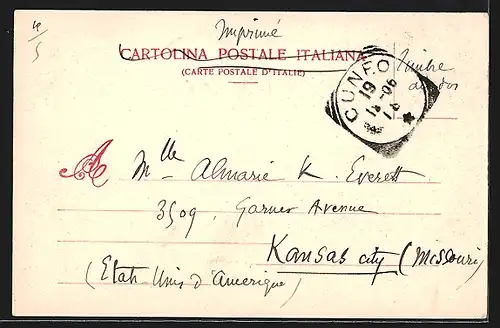 Imprimé
CARTOLINA POSTALE ITALIANA
(CARTE POSTALE D'ITALIE)
Timbre
au dos
CUNEO
19
06
A Mlle Almarie K. Everett
3509, Garner Avenue
Kansas city (Missouri)
(Etats-Unis d'Amerique)